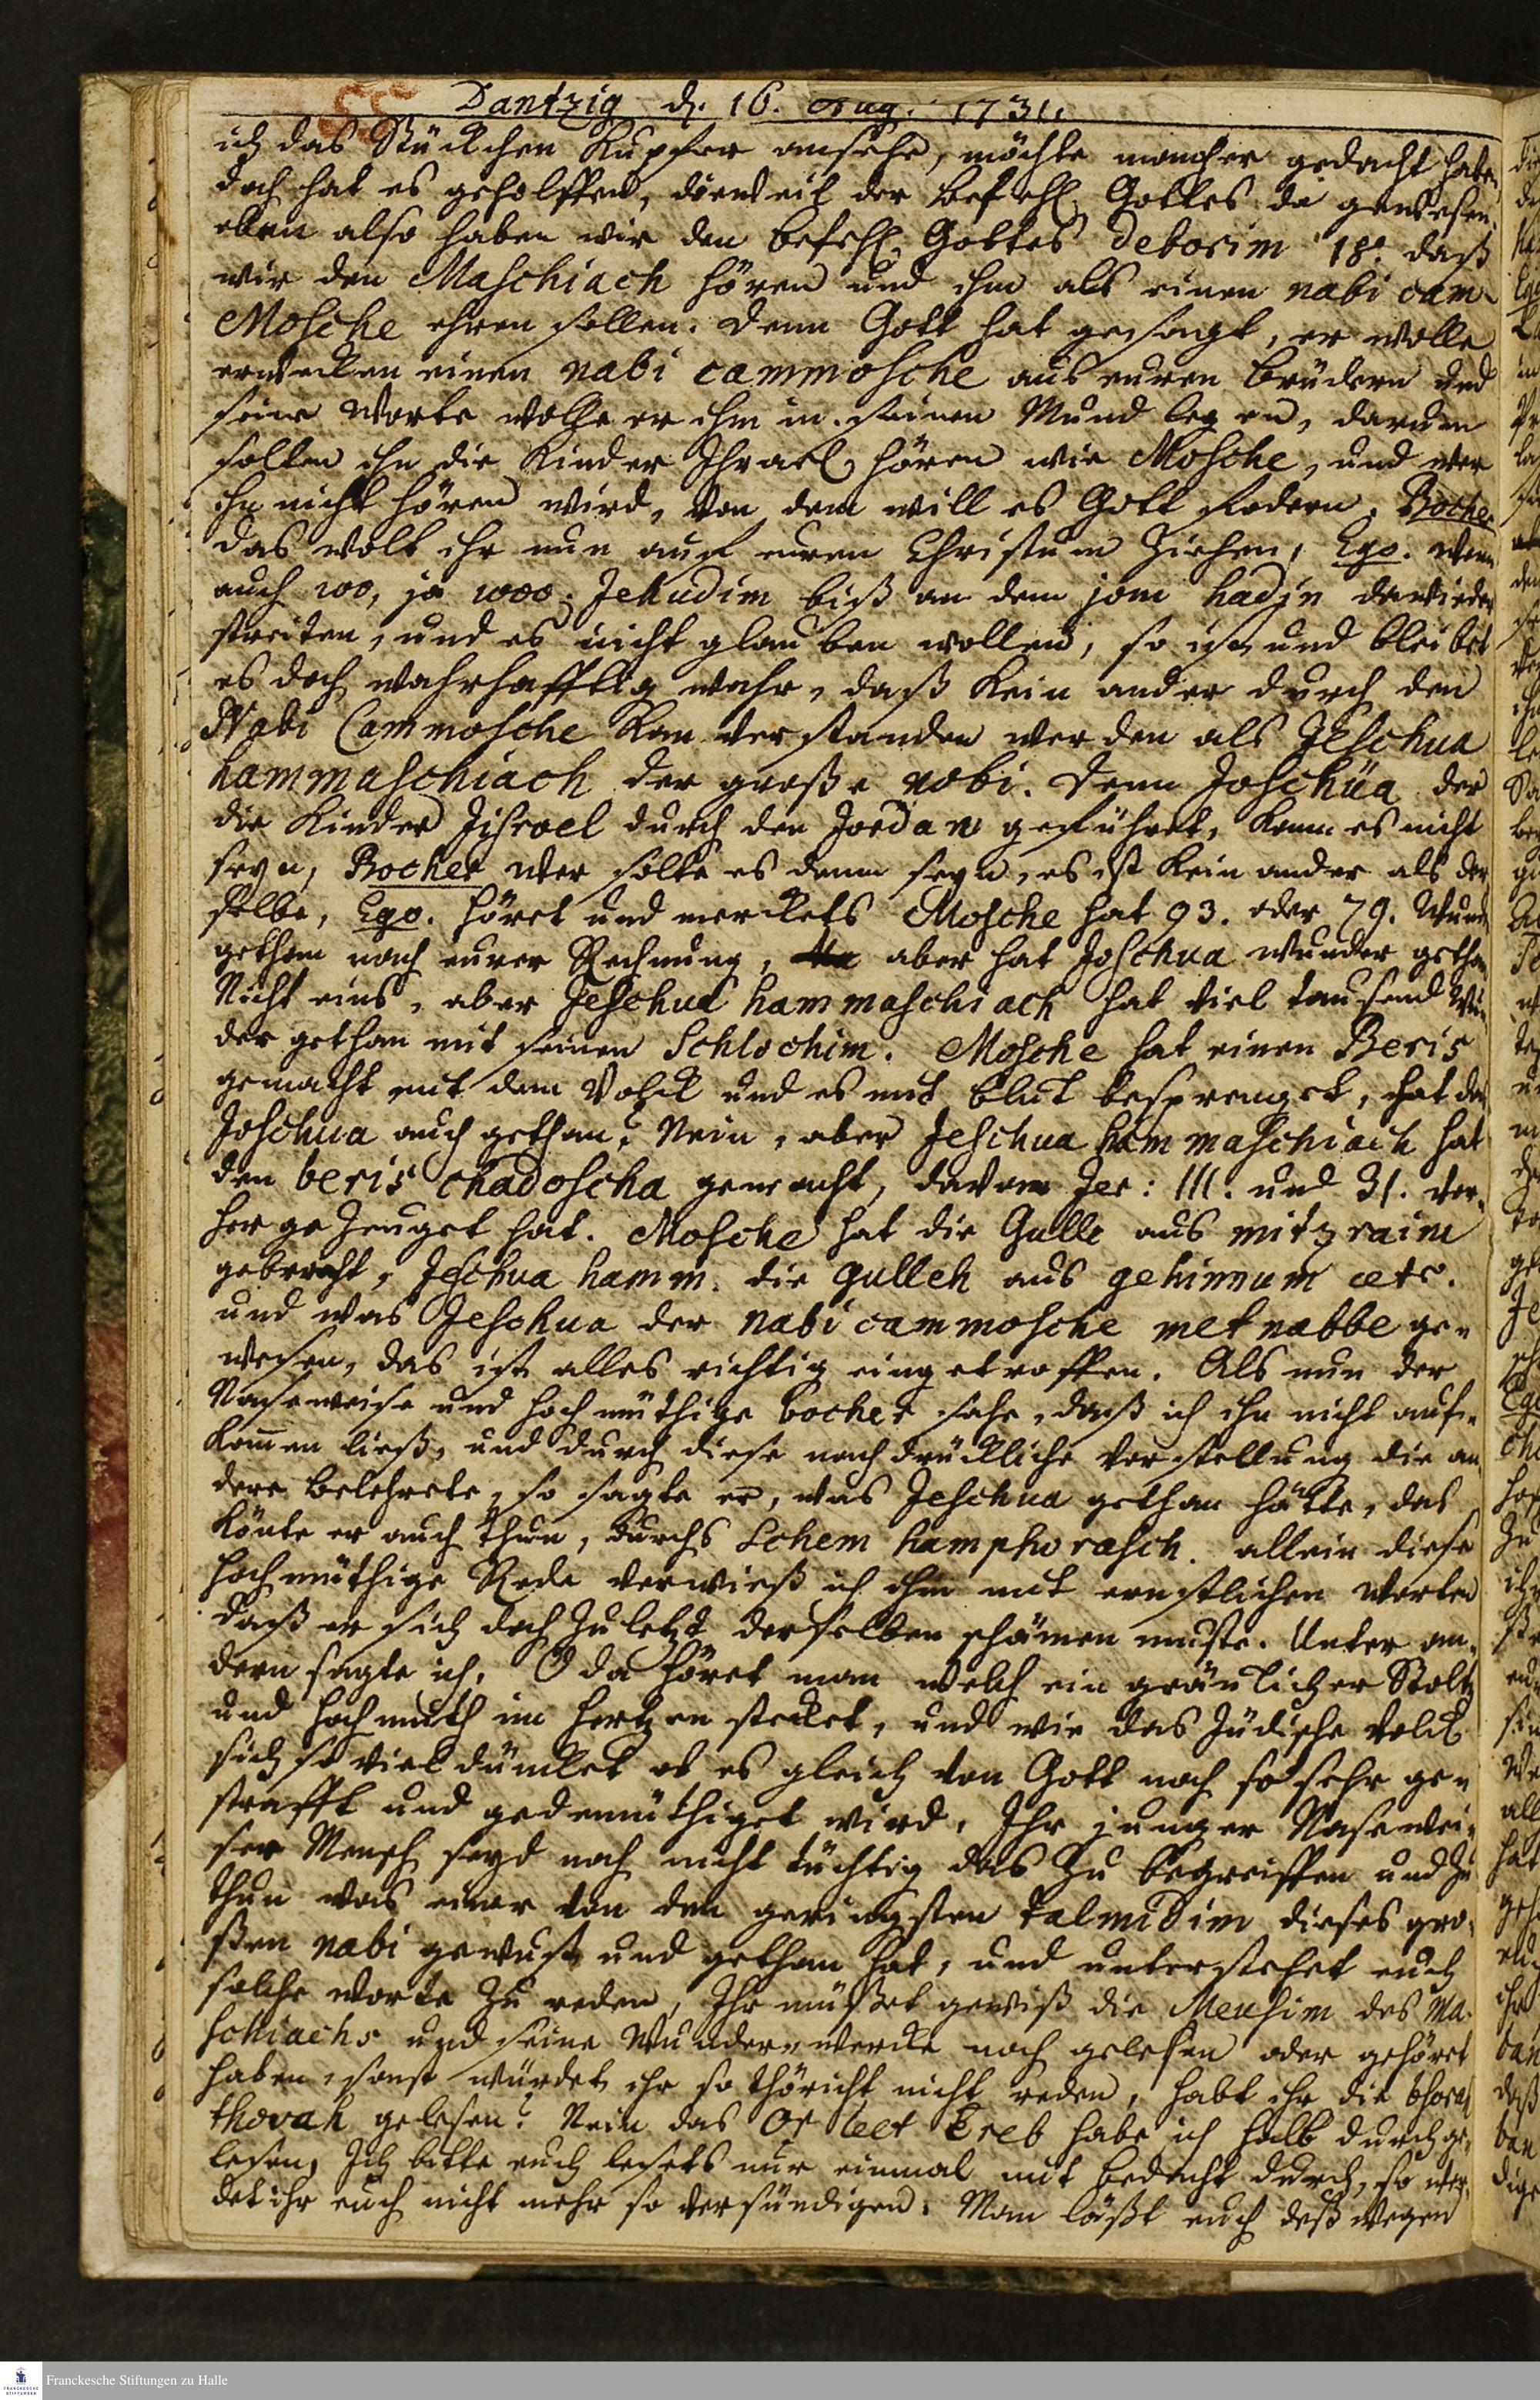 Dantzig d. 16. Aug. 1731.
ich das Stückchen Kupfer ansehe, möchte mancher gedacht haben
doch hat es geholffen, dieweil der Befehl Gottes da gewesen,
eben also haben wir den Befehl Gottes deborim 18. daß
wir den Maschiach hören und ihm als einen nabi cam-
Mosche ehren sollen. Denn Gott hat gesagt, er wolle
erwecken einen nabi cammosche aus euren Brüdern und
seine Worte wolle er ihm in seinen Mund legen, darum
sollen ihn die Kinder Jhrael hören wie Mosche, und wer
ihn nicht hören wird, von dem will es Gott fodern. Bocher
das wolt ihr nun auf euren Christum ziehen, Ego. wenn
auch 100, ja 1000. Jehudim biß an dem jom hadin dawieder
streiten, und es nicht glauben wollen, so ist und bleibet
es doch wahrhafftig wahr, daß kein ander durch den
Nabi Cammosche kan verstanden werden als Jeschua
hammaschiach der große nobi. Denn Joschua der
die Kinder Jisroel durch den Jordan geführet, kann es nicht
seyn, Bocher wer solte es denn seyn, es ist kein ander als der
selbe, Ego. höret und merckets Mosche hat 93. oder 79. Wund
gethan nach eurer Rechnung, aber hat Joschua wunder gethan
Nicht eins, aber Jeschua hammaschiach hat viel tausend Wun
der gethan mit seinen Schlochim. Mosche hat einen Beris
gemacht mit dem Volck und es mit Blut besprenget, hat das
Joschua auch gethan? Nein, aber Jeschua hammaschiach hat
den beris chadoscha gemacht, davon Jer: III. und 31. vor-
her gezeuget hat. Mosche hat die Gulle aus mitzraim
gebracht, Jeschua hamm. die gulleh aus gehinnum cetr.
und was Jeschua der nabi cammosche metnabbe ge-
wesen, das ist alles richtig eingetroffen. Als nun der
Naseweise und hochmüthige bocher sahe, daß ich ihn nicht auf-
kommen ließ, und durch diese nachdrückliche Verstellung die an
dere belehrete, so sagte er, was Jeschua gethan hätte, das
könte er auch thun, durchs Schem hamphorasch. allein diese
hochmüthige Rede verwieß ich ihm mit ernstlichen Worten
daß er sich doch zuletzt derselben schämen muste. Unter an-
dern sagte ich, O da höret man welch ein gräulicher Stoltz
und hochmuth im Hertzen stecket, und wie das Jüdische Volck
sich so viel düncket ob es gleich von Gott noch so sehr ge-
strafft und gedemüthiget wird. Ihr junger Nasewei-
ser Mensch seyd noch nicht tüchtig das zu begreiffen und zu
thun was einer von den geringsten talmidim dieses gro-
ßen nabi gewust und gethan hat, und unterstehet euch
solche Worte zu reden, Ihr müßet gewiß die Meusim des Ma-
schiachs und seine Wunder-wercke noch gelesen oder gehöret
haben, sonst würdet ihr so thöricht nicht reden, habt ihr die bsoras
thovah gelesen? Nein das Or leet Ereb habe ich halb durchge-
lesen, Ich bitte euch lesets nur einmal mit bedacht durch, so wer-
det ihr euch nicht mehr so versündigen. Man läßt euch deßwegen
Franckesche Stiftungen zu Halle